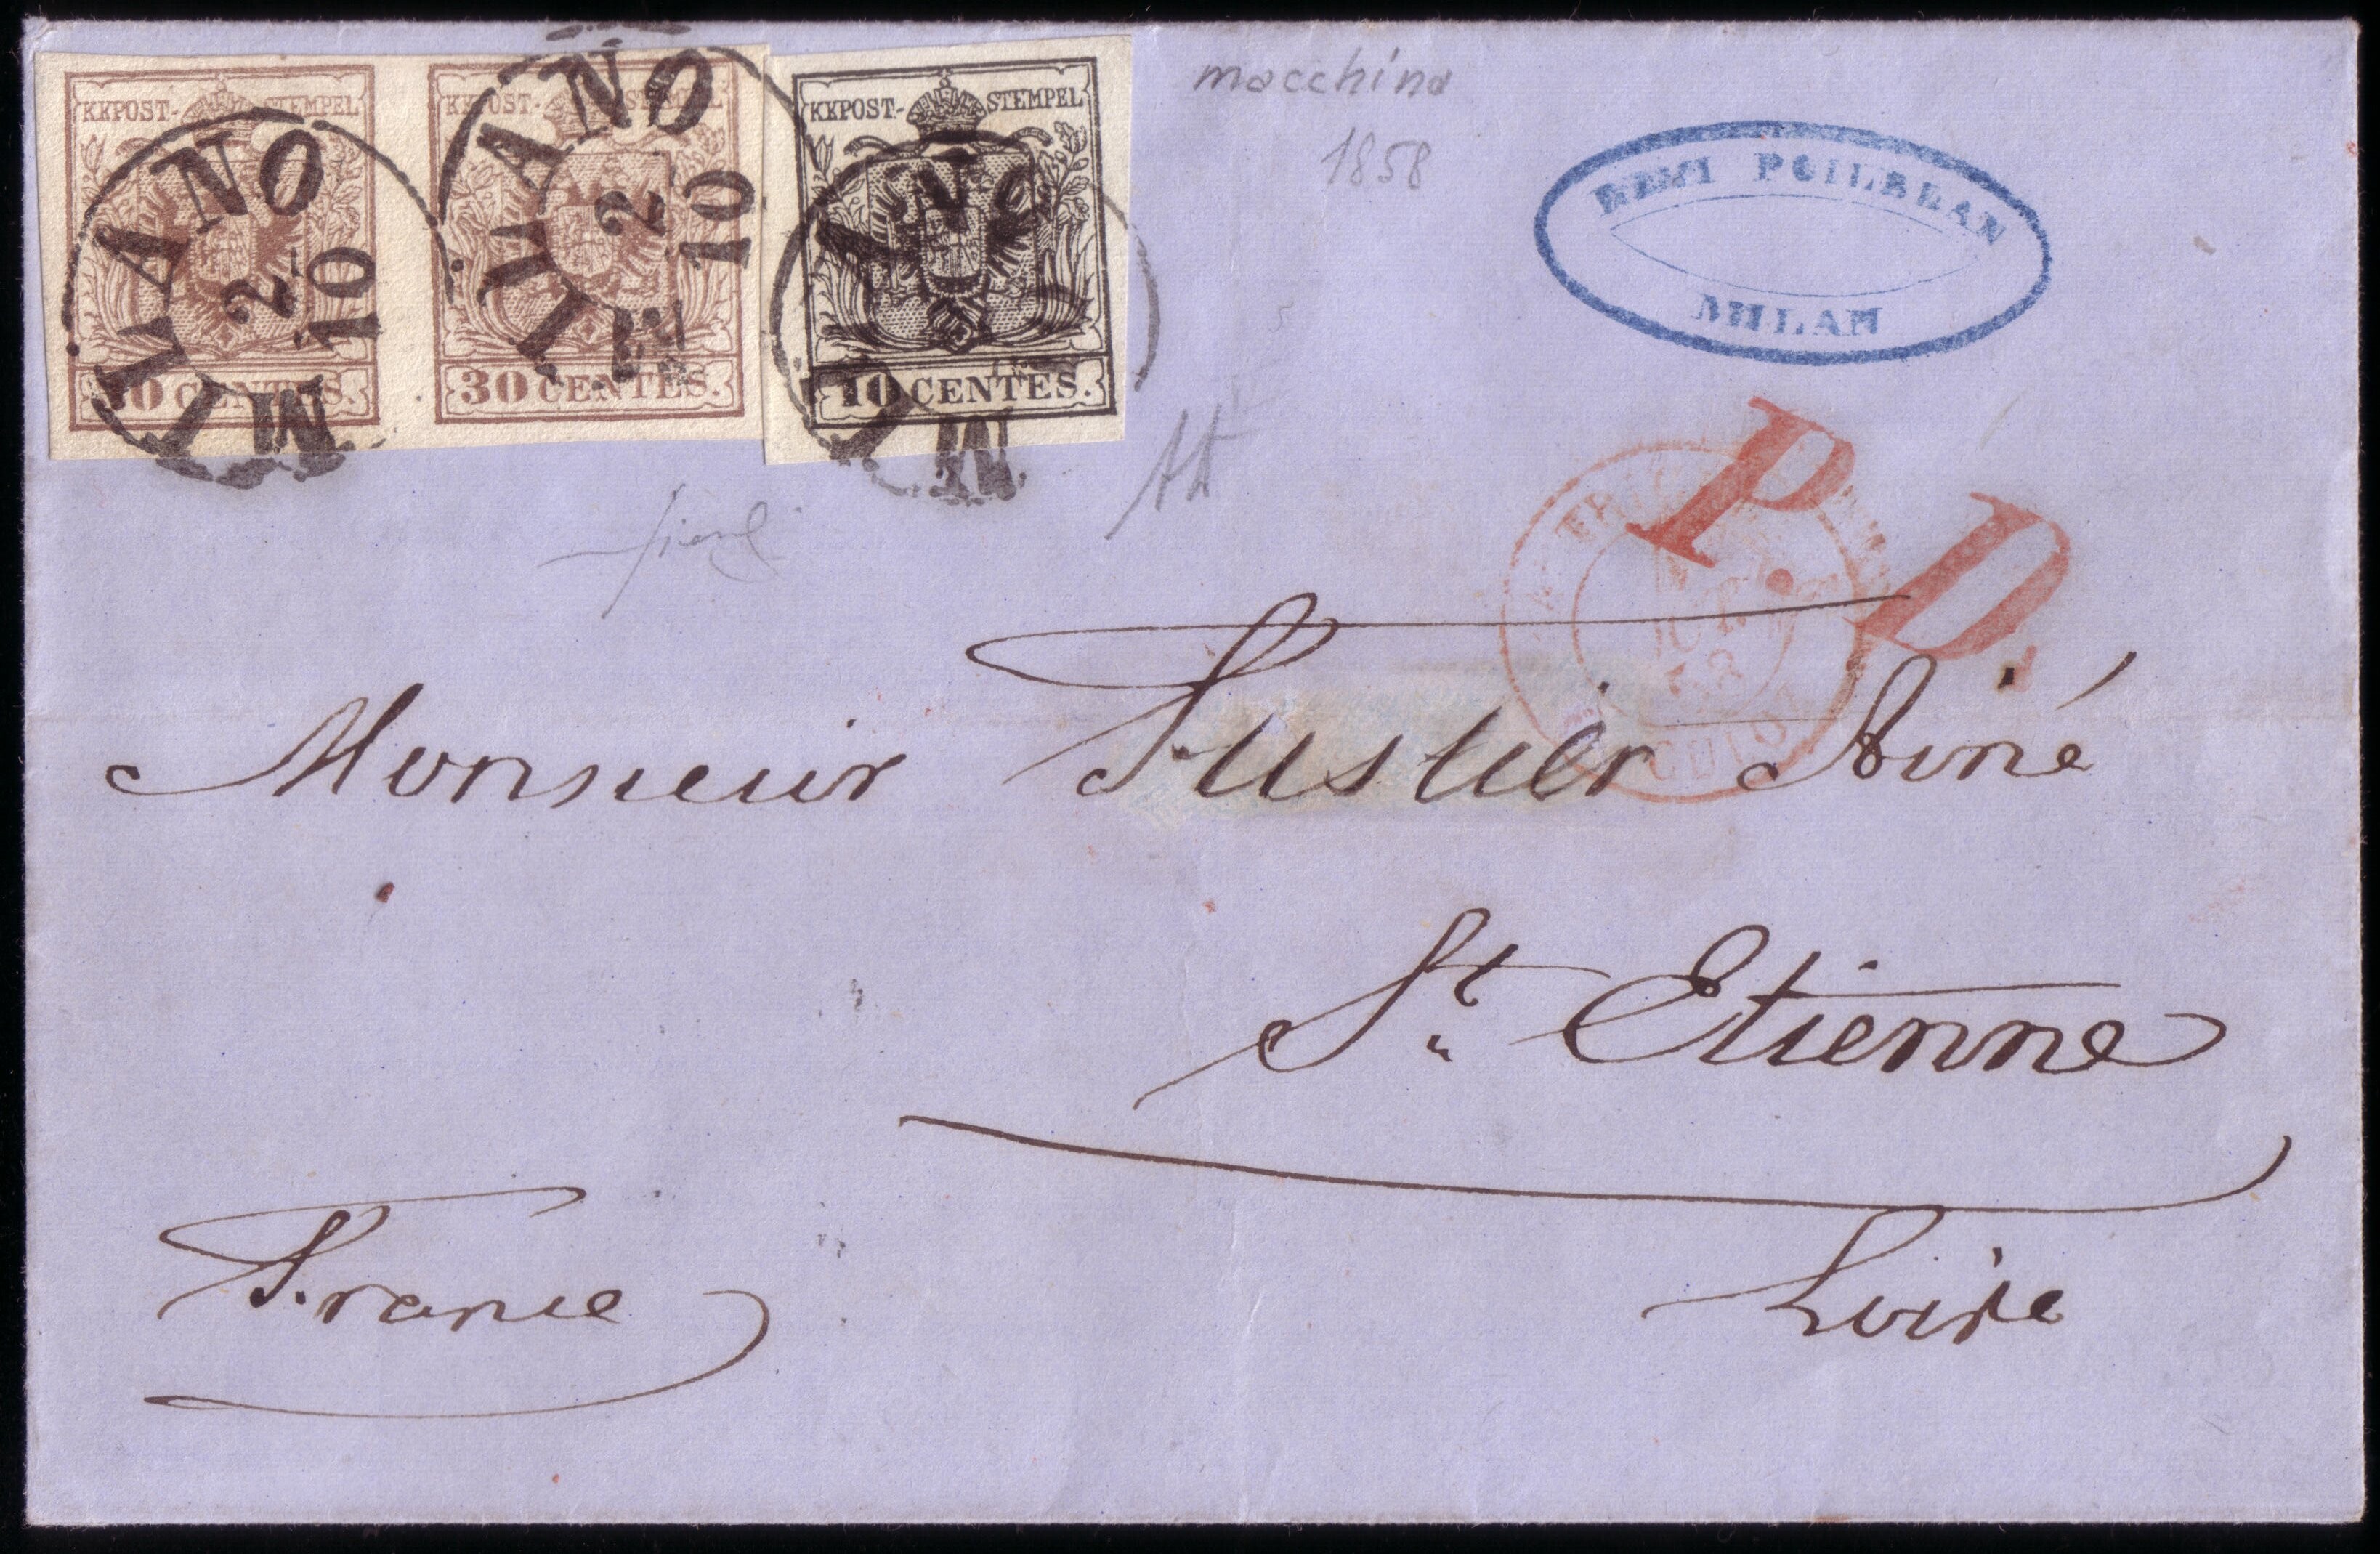 KKPOST-STEMPEL
KKPOST-STEMPEL
KKPOST-STEMPEL
30 CENTES.
30 CENTES.
10 CENTES.
MILANO
2
10
MILANO
2
10
macchina
1858
REMI POILBEAN
MILAN
P.D.
Monsieur Fustier Ainé
St. Etienne
Loire
France